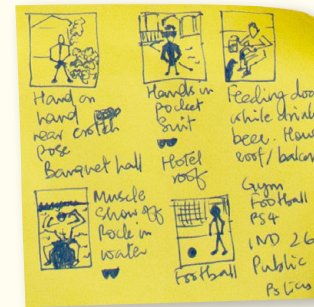 Hand on
hand
near crotch
pose
Banquet hall
Hands in
pocket
Suit
Hotel
roof
Feeding
while drink
beer.
roof/balcon
Muscle
show off
Rock in
water
Football
Gym
Football
PS4
IND 26
Public